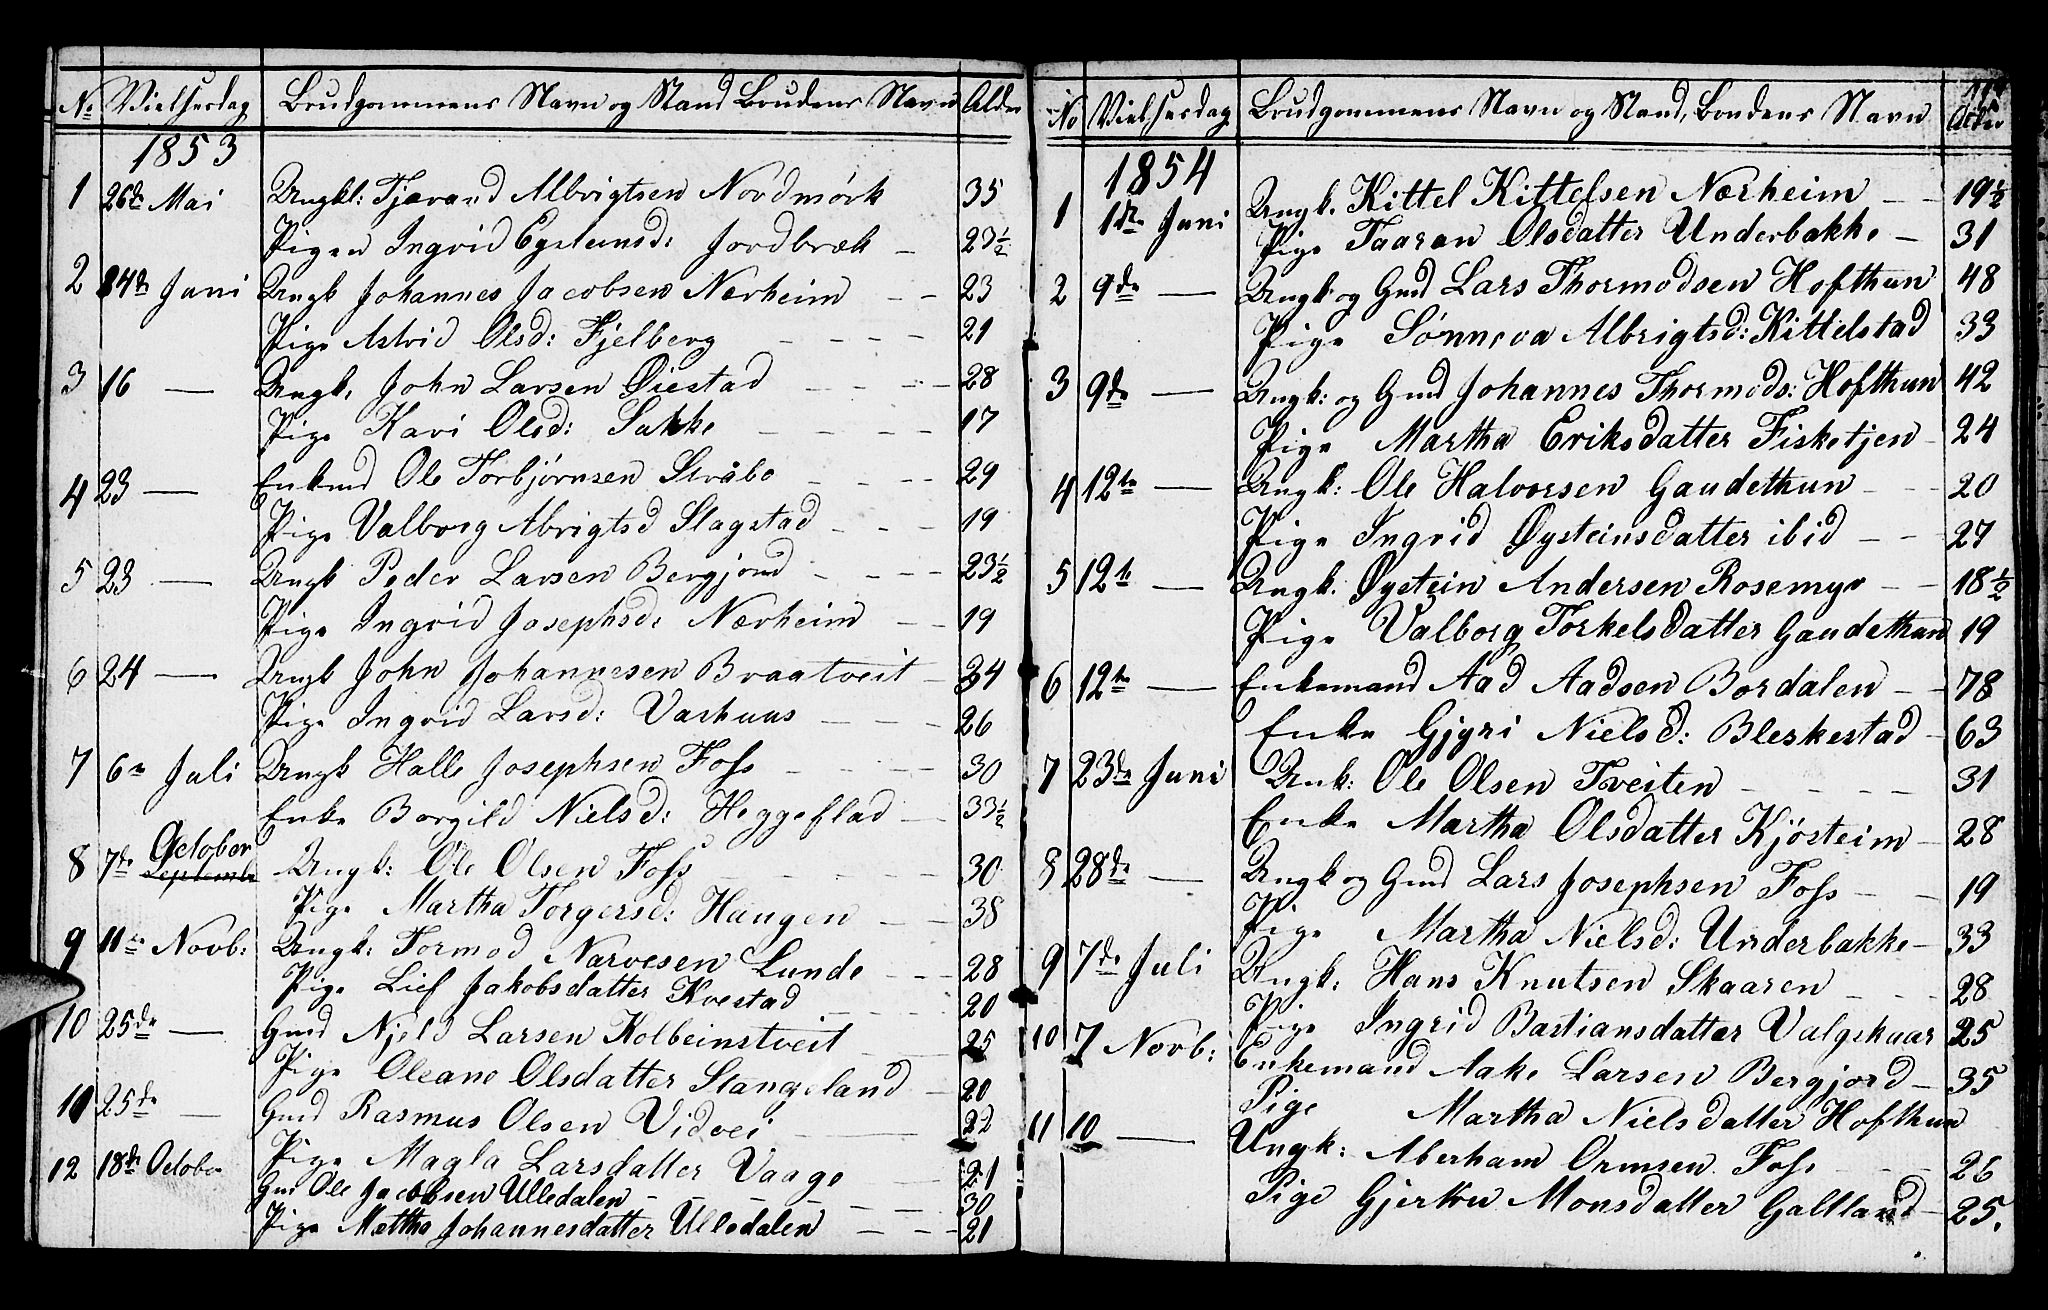 No Vielsesdag Brudgommens Navn og Stand Brudens Navn Alder
1853
1 26de Mai Ungk: Tjærand Albrigtsen Nordmørk 35
Pigen Ingrid Eysteinsd: Jordbræk – 23½
2 Juni Ungk Johannes Jacobsen Nærheim – – 23
Pige Astrid Olsd: Fjelberg – – – – 21
3 16 — Ungk. John Larsen Øiestad – – – – 28
Pige Kari Olsd: Sukke – – – – 17
4 23 — Enkmd Ole Torbjørnsen Stråbo – – – – 29
Pige Valborg Abrigtsd Slagstad – – – 19
5 23 — Ungk Peder Larsen Bergjord – – – – 23½
Pige Ingrid Josephsd: Nærheim – – 19
6 24 — Ungk John Johannesen Braatveit – 34
Pige Ingrid Larsd: Vashuus – – – – 26
7 6te Juli Ungk Halle Josephsen Foss – – – – 30
Enke Borgild Nielsd: Heggeflad – 33½
8 7de October Septembr Ungk: Ole Olsen Foss – – – – 30
Pige Martha Torgersd: Haugen – – 38
9 11te Novb: Ungk: Tormod Narvesen Lunde – – 28
Pige Lief Jakobsdatter Kvestad – – – 20
10 25de — Gmd Njeld Larsen Kolbeinstveit – – 25
Pige Oleane Olsdatter Stangeland – 20
11 25de — Gmd Rasmus Olsen Vidvei – – 22
Pige Magla Larsdatter Vaage – 21
12 18de October Gmd Ole Jacobsen Ulledalen – – – – – 30
Pige Mættha Johannesdatter Ulledalen – – – 21
No Vielsesdag Brudgommens Navn og Stand, Brudens Navn Alder
1854
1 1ste Juni Ungk. Kittel Kittelsen Nærheim – – 19½
Pige Taaran Olsdatter Underbakke – 31
2 9de — Ungk og Gmd Lars Thormodsen Hofthun 48
Pige Sønneva Albrigtsd: Kittelstad 33
3 9de — Ungk: og Gmd Johannes Thormods: Hofthun 42
Pige Martha Eriksdatter Fisketjen – 24
4 12te — Ungk: Ole Halvorsen Gaudethun – – 20
Pige Ingrid Øysteinsdatter ibid – – 27
5 12te — Ungk. Øystein Andersen Rosemyr – – 18½
Pige Valborg Torkelsdatter Gaudethun 19
6 12te — Enkemand Aad Aadsen Bordalen – – 78
Enke Gjyri Nielsd: Bleskestad – 63
7 23de Juni Unk: Ole Olsen Tveiten – – – – 31
Enke Martha Olsdatter Kjösteim – 28
8 28de — Ungk og Gmd Lars Josephsen Foss – – 19
Pige Martha Nielsd: Underbakke – 33
9 7de Juli Ungk: Hans Knutsen Skaaren – – – 28
Pige Ingrid Bastiansdatter Valgskaar 25
10 7 Novb: Enkemand Aake Larsen Bergjord – 35
Pige Martha Nielsdatter Hofthun
11 10 — Ungk: Aberham Ormsen Foss – – – 26
Pige Gjertru Monsdatter Galtland – 25.